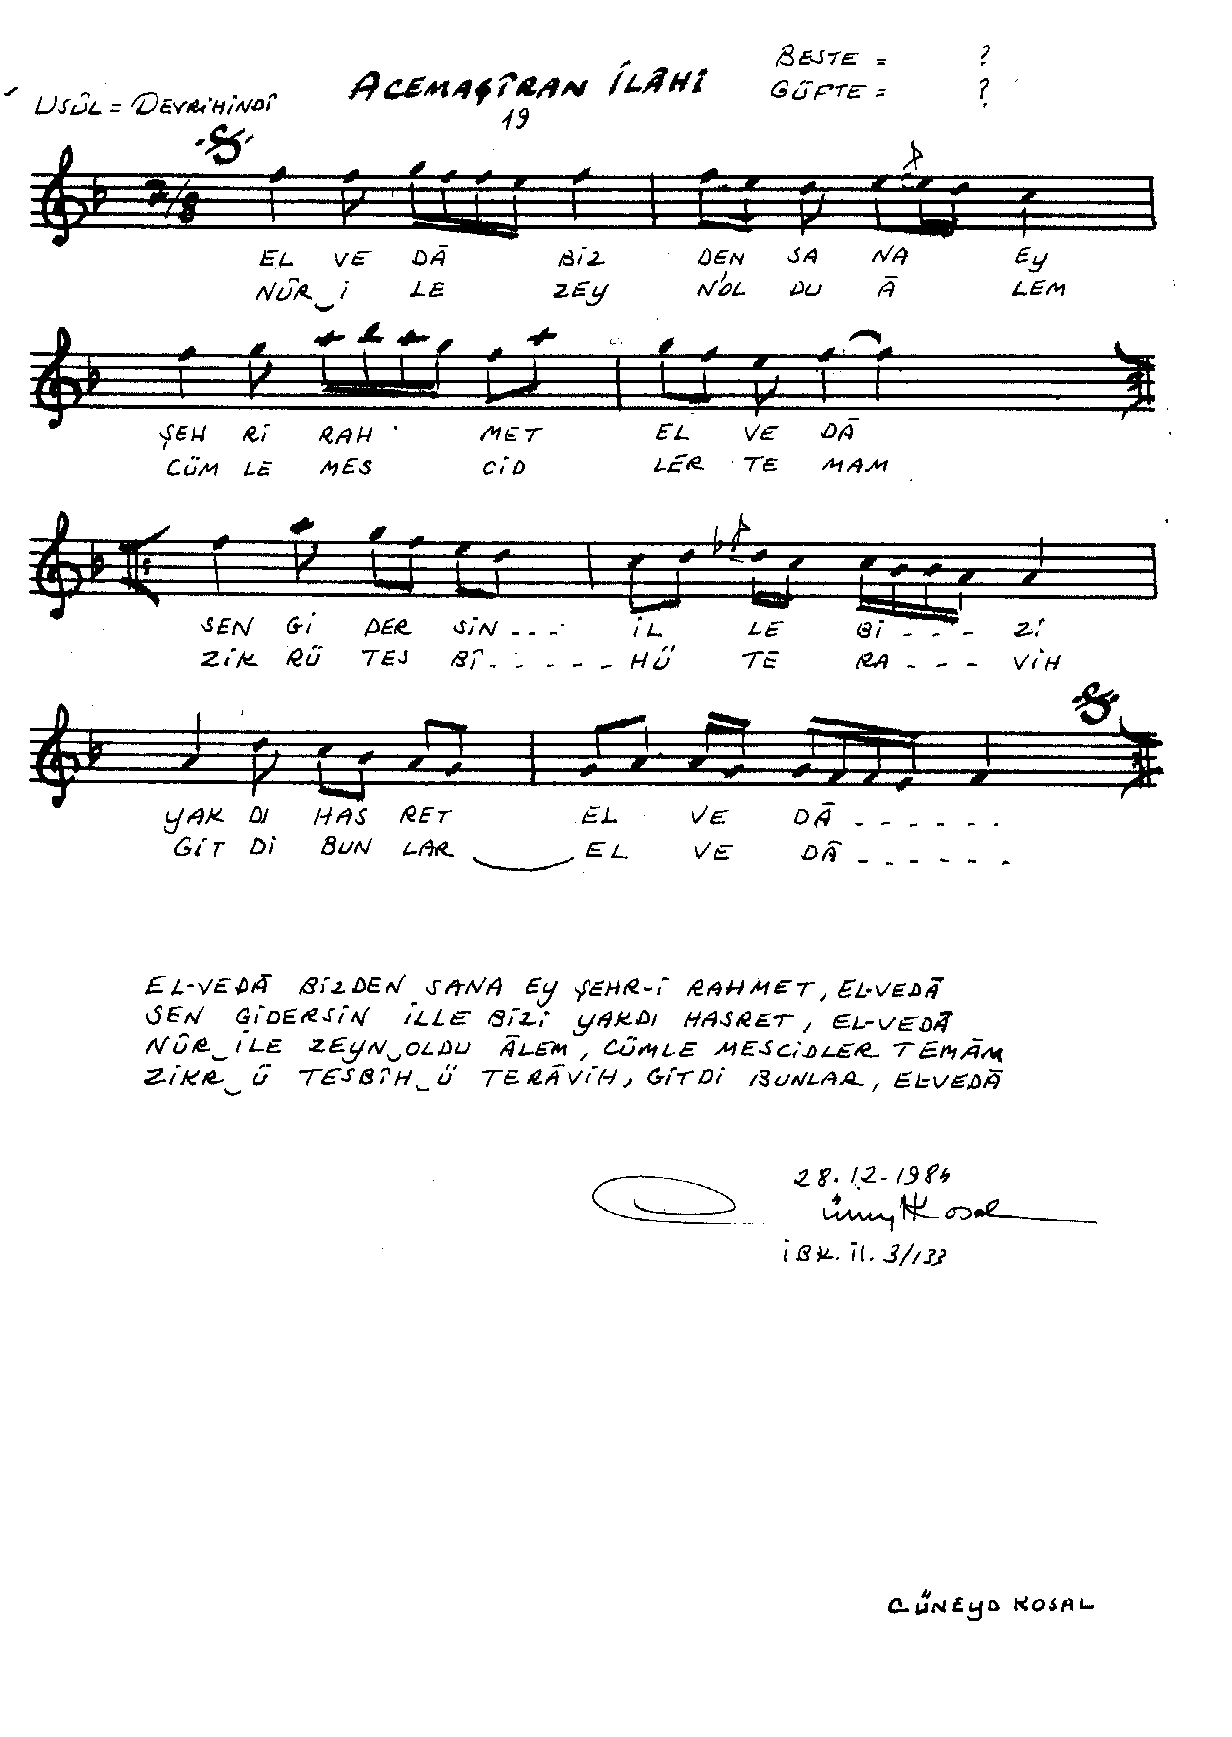 BESTE = ?
ACEMAŞÎRAN İLÂHİ
GÜFTE = ?
USÛL = DEVRİHİNDÎ
19
7/8
EL VE DÂ BİZ DEN SA NA EY
NÛR İ LE ZEY N'OL DU Â LEM
ŞEH Rİ RAH MET EL VE DÂ
CÜM LE MES CİD LER TE MAM
SEN Gİ DER SİN - - - İL LE Bİ - - - Zİ
ZİK RÜ TES BÎ - - - - - HÜ TE RA - - - VİH
YAK DI HAS RET EL VE DÂ - - - - - -
GİT Dİ BUN LAR EL VE DÂ - - - - - -
EL-VEDÂ BİZDEN SANA EY ŞEHR-İ RAHMET, EL-VEDÂ
SEN GİDERSİN İLLE BİZİ YAKDI HASRET, EL-VEDÂ
NÛR İLE ZEYN OLDU ÂLEM, CÜMLE MESCİDLER TEMÂM
ZİKR Ü TESBÎH Ü TERÂVİH, GİTDİ BUNLAR, ELVEDÂ
28.12.198
Cüneyt Kosal
İBK. İl. 3/133
CÜNEYD KOSAL